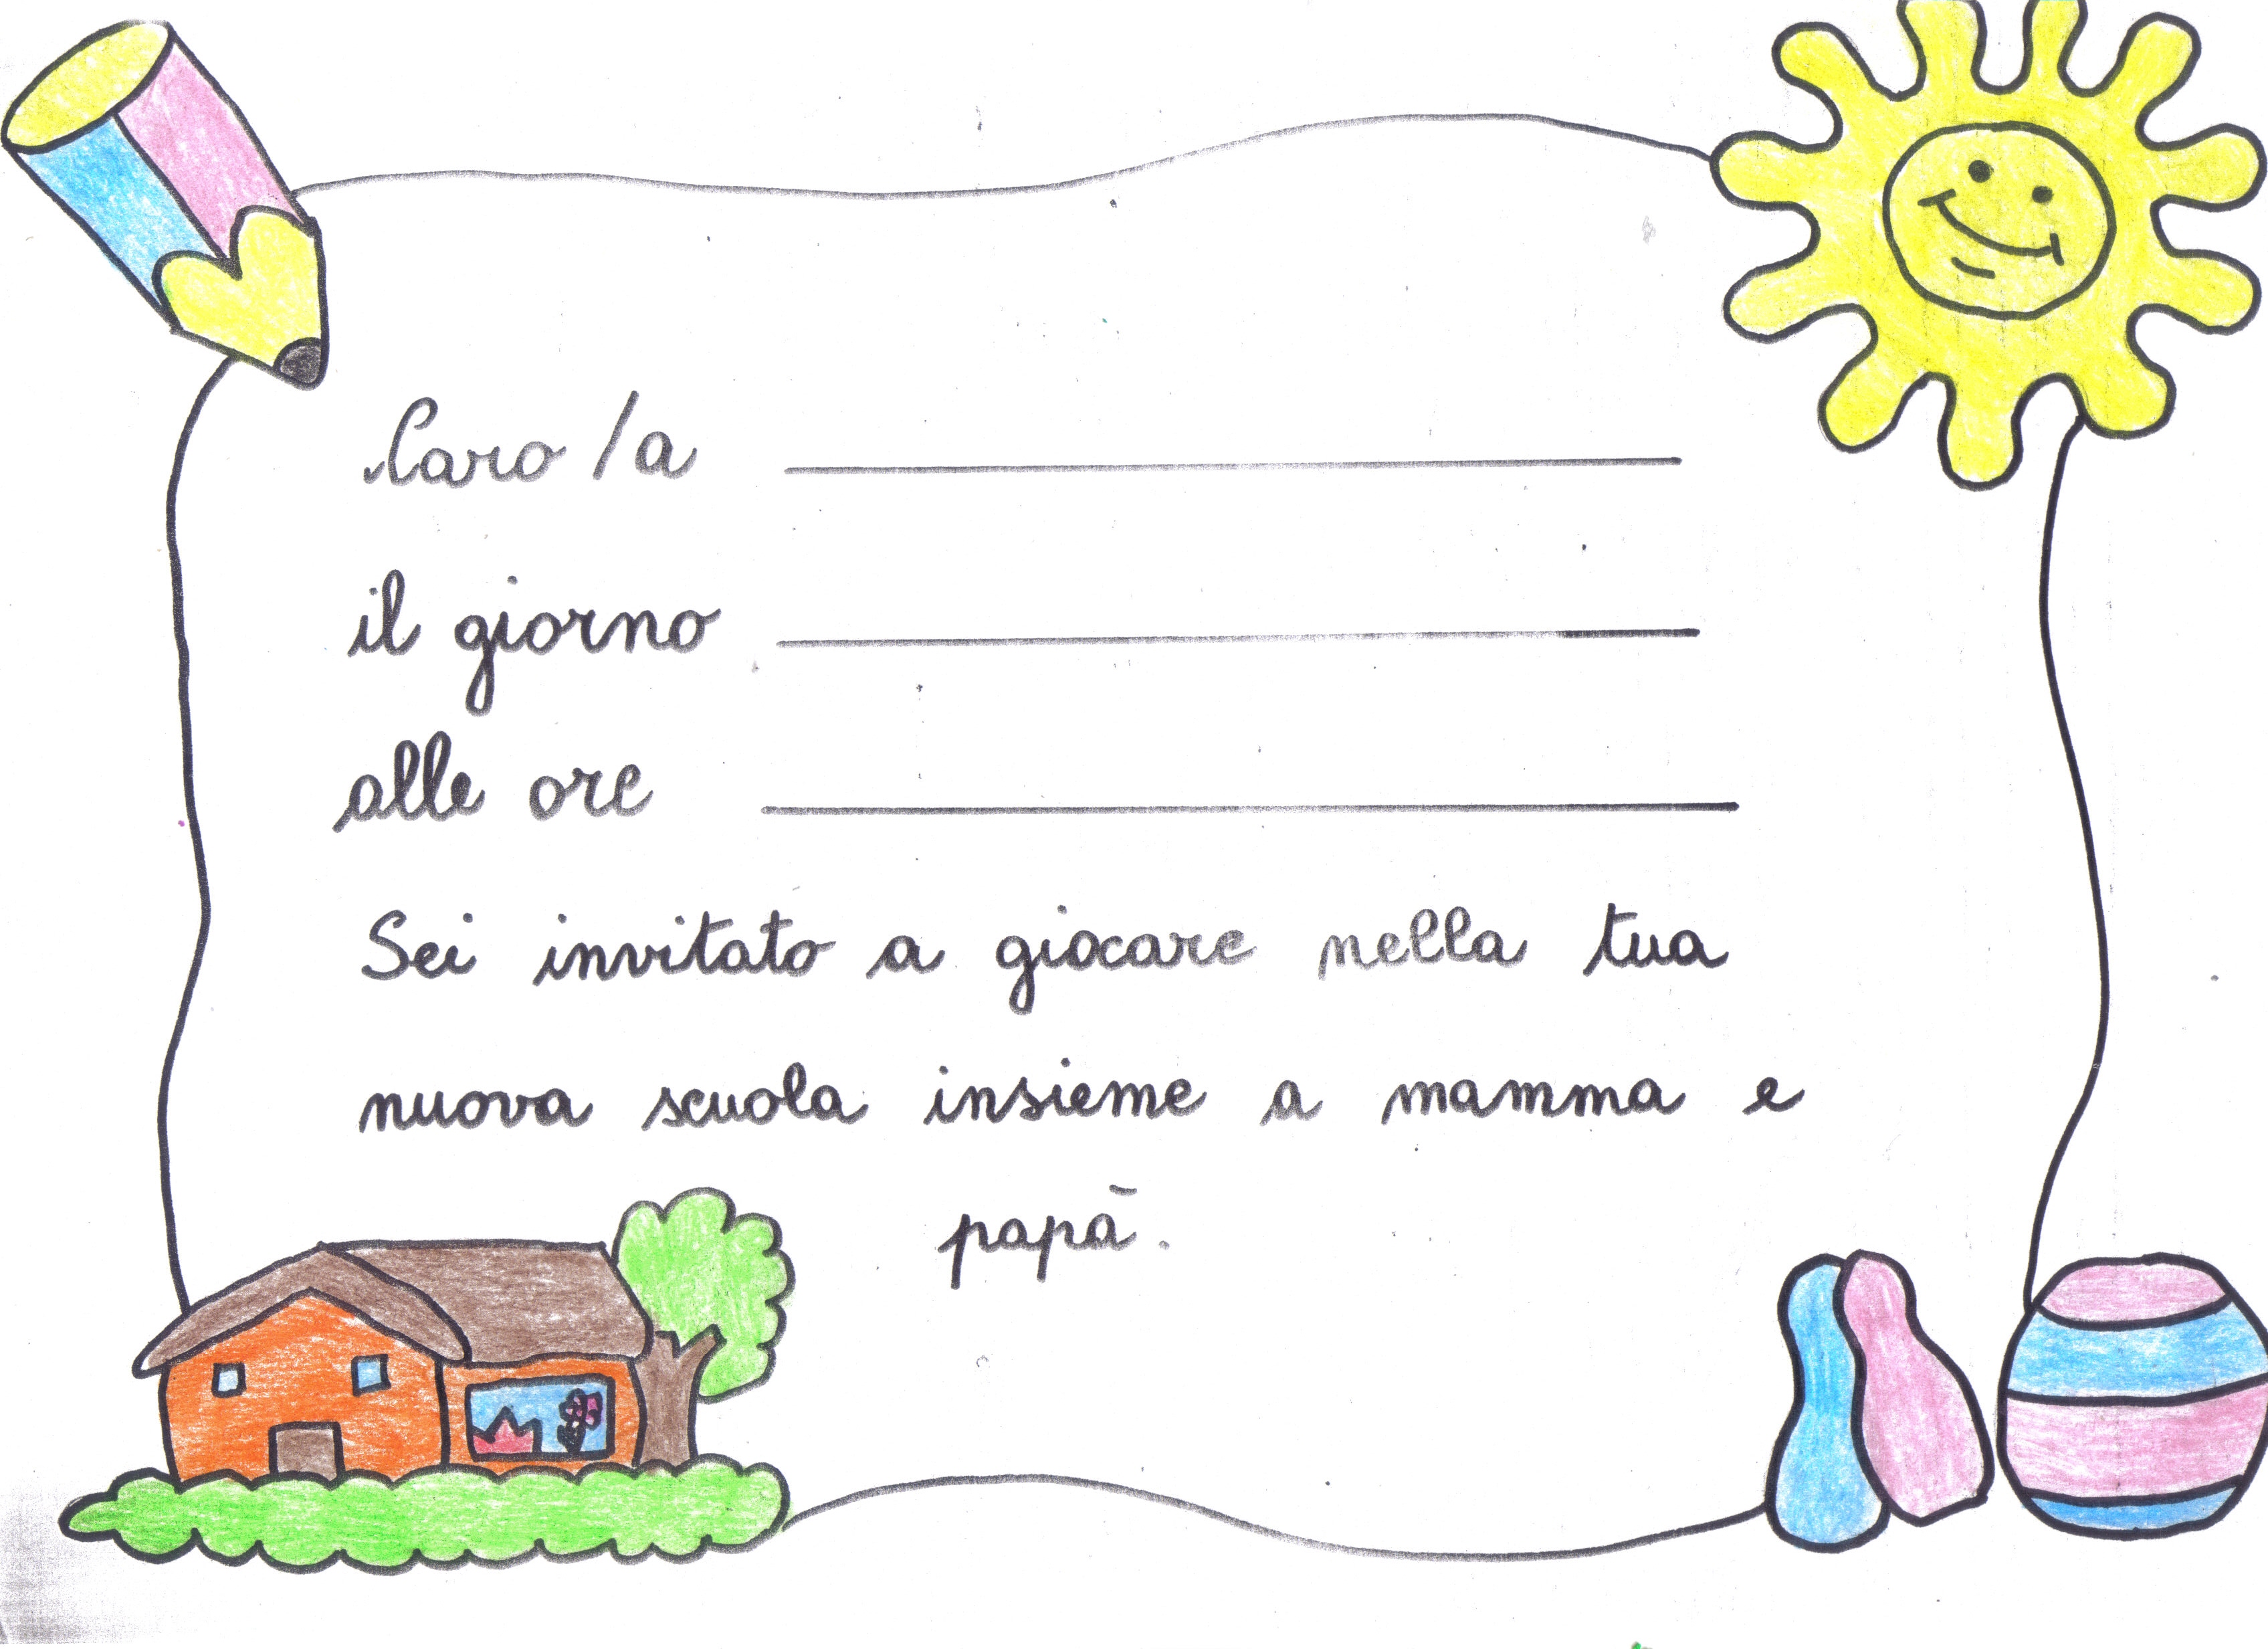 Caro /a
il giorno
alle ore
Sei invitato a giocare nella tua
nuova scuola insieme a mamma e
papā.